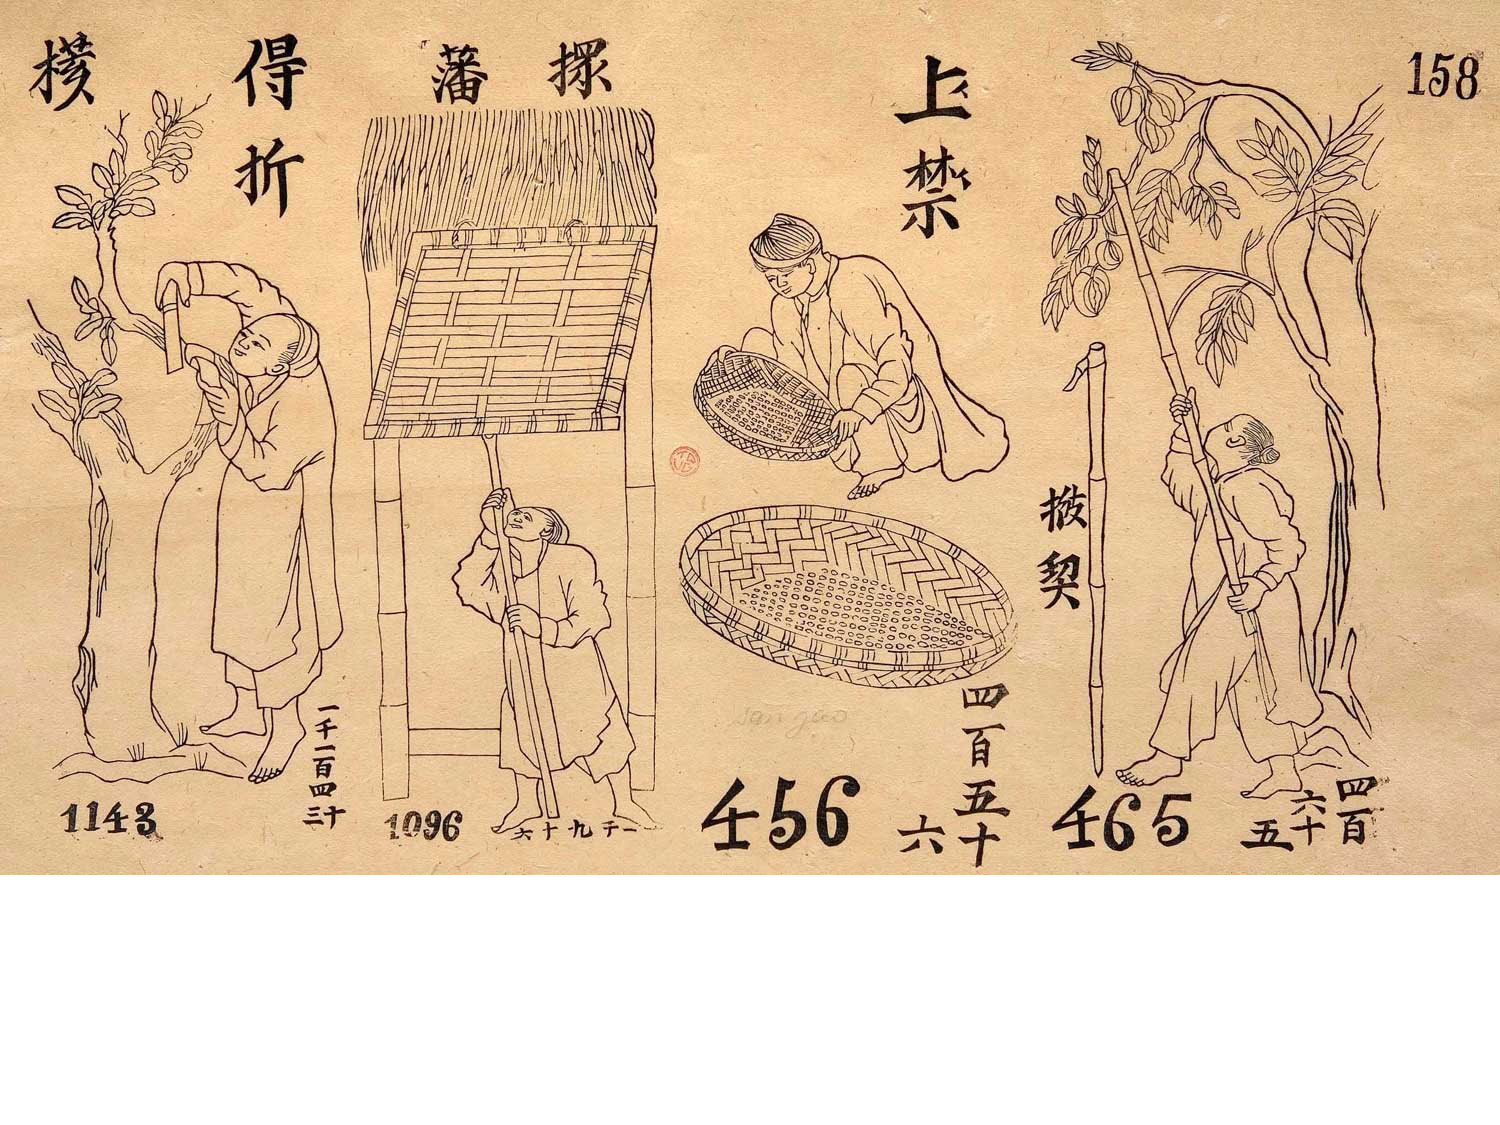 158
得折
藩
上禁
契
san gạo
一千一百四十三
1143
一千九十六
1096
四百五十六
456
四百六十五
465